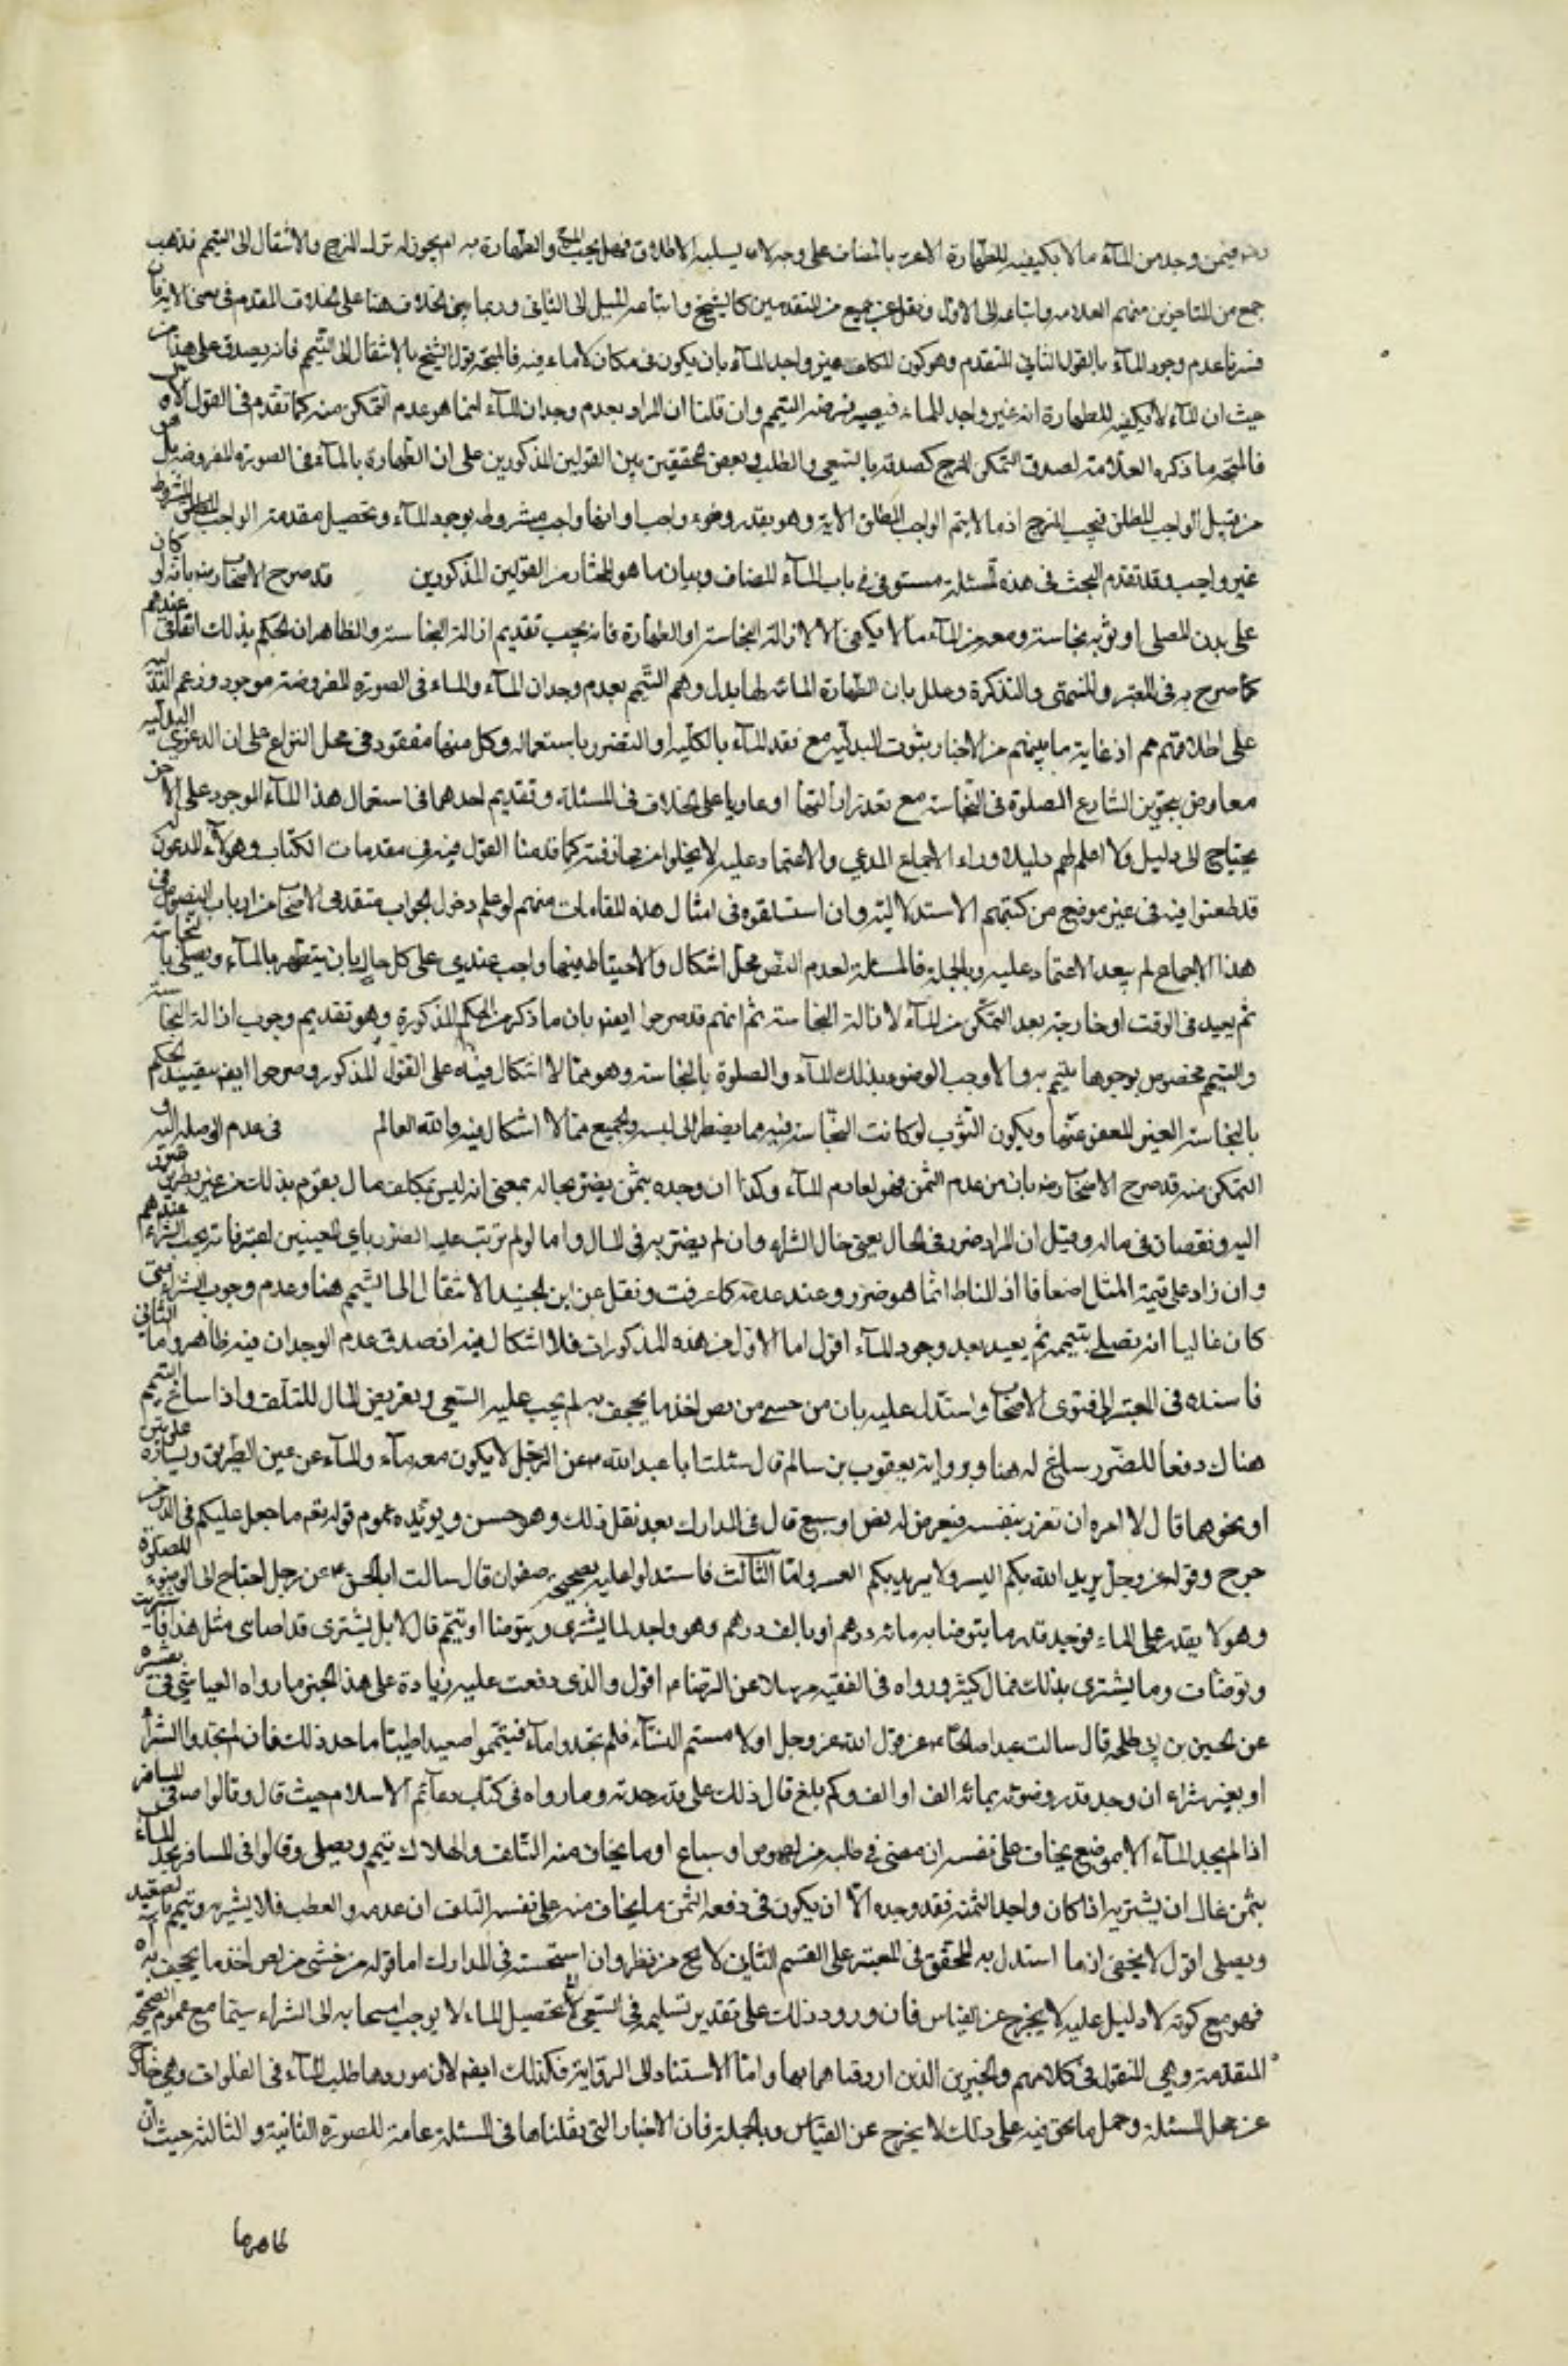 فيمن وجد من المآء ما لا يكفيه للطهارة الا مزجه بالمضاف على وجه لا يسلبه الاطلاق فهل يجب المزج والطهارة به ام يجوز له ترك المزج والانتقال الى التيمم فذهب
جمع من المتاخرين منهم العلامه واتباعه الى الاول ونقل عن جمع من المتقدمين كالشيخ واتباعه الميل الى الثانى وربما بنى الخلاف هنا على الخلاف المقدم فى معنى الاية فان
فسرنا عدم وجود المآء بالقول الثانى المتقدم وهو كون المكلف غير واجد المآء بان يكون فى مكان لا ماء فيه فالمتجه قول الشيخ بالانتقال الى التيمم فانه يصدق على هذا من
حيث ان المآء لا يكفيه للطهارة انه غير واجد للماء فيصير فرضه التيمم وان قلنا ان المراد بعدم وجدان المآء انما هو عدم التمكن منه كما تقدم فى القول الاخر
فالمتجه ما ذكره العلامة لصدق التمكن بالمزج كصدقه بالسعى والطلب وبعض المحققين بين القولين المذكورين على ان الطهارة بالمآء فى الصورة المفروضة هل هى
من قبيل الواجب المطلق فيجب المزج اذ ما لا يتم الواجب المطلق الا به وهو بقدر وضوء واجب او انها واجب مشروط بوجود المآء وتحصيل مقدمة الواجب المشروط
غير واجب وقد تقدم البحث فى هذه المسئلة مستوفى فى باب المآء المضاف وبيان ما هو المختار من القولين المذكورين قد صرح الاصحاب رضه بانه لو كان
على بدن المصلى او ثوبه نجاسة ومعه من المآء ما لا يكفى الا لازالة النجاسة او الطهارة فانه يجب تقديم ازالة النجاسة والظاهر ان الحكم بذلك اتفاقى عندهم
كما صرح به فى المعتبر والمنتهى والتذكرة وعلل بان الطهارة المائية لها بدل وهو التيمم بعدم وجدان المآء والماء فى الصورة المفروضة موجود وزعم البدلية
على اطلاقه اذ غاية ما يفهم من الاخبار ثبوت البدلية مع فقد المآء بالكلية او التضرر باستعماله وكل منهما مفقود فى محل النزاع على ان الدعوى
معارض بتجويز الشارع الصلوة فى النجاسة مع تعذر ازالتها او عاريا على الخلاف فى المسئلة وتقديم احدهما فى استعمال هذا المآء الموجود على الاخر
يحتاج الى دليل ولا اعلم لهم دليلا وراء الاجماع المدعى والاعتماد عليه لا يخلوا من مجازفة كما قدمنا القول فيه فى مقدمات الكتاب وهؤلآء المدعون له
قد طعنوا فيه فى غير موضع من كتبهم الاستدلالية وان استسلقوه فى امثال هذه المقامات منهم لو علم دخول الجواب متقدمى الاصحاب من ارباب النصوص فى
هذا الاجماع لم يبعد الاعتماد عليه وبالجملة فالمسئلة لعدم النص محل اشكال والاحتياط فيها واجب عندى على كل حال بان يتطهر بالمآء ويصلى بالنجاسة
ثم يعيد فى الوقت او خارجه بعد التمكن من المآء لازالة النجاسة ثم انهم قد صرحوا ايضا بان ما ذكر من الحكم المذكورة وهو تقديم وجوب ازالة النجاسة
والتيمم مخصوص بوجود ما يتيمم به والا وجب الوضوء بذلك المآء والصلوة بالنجاسة وهو مما لا اشكال فيه على القول المذكور وصرحوا ايضا بتقييد الحكم
بالنجاسة الغير المعفو عنها ويكون الثوب لو كانت النجاسة فيه مما يضطر الى لبسه والجميع مما لا اشكال فيه والله العالم فى عدم الوصلة اليه و
التمكن منه قد صرح الاصحاب رضه بان من عدم الثمن فهو لعادم المآء وكذا ان وجده بثمن يضر بحاله بمعنى انه ليس تكلف مال يقوم بذلك من غير تطرق ضرر
اليه ونقصان فى ماله وقيل ان المراد ضرر فى الحال يعنى حال الشراء وان لم يضر به فى المال واما لو لم يترتب عليه الضرر باى المعنيين اعتبر فانه يجب الشراء عندهم
وان زاد على قيمة المثل اضعافا اذ المناط انما هو ضرر وعند عدمه كما عرفت ونقل عن ابن الجنيد الانتقال الى التيمم هنا وعدم وجوب الشراء متى
كان غاليا انه يصلى بتيممه ثم يعيد بعد وجود المآء اقول اما الاول من هذه المذكورات فلا اشكال فيه اذ صدق عدم الوجدان فيه ظاهر واما الثانى
فاسنده فى المعتبر الى فتوى الاصحاب واستدل عليه بان من خشى من لص اخذ ما يجحف به لم يجب عليه السعى وتعريض المال للتلف واذا ساغ التيمم
هناك دفعا للضرر ساغ له هنا وبرواية يعقوب بن سالم قال سئلت ابا عبد الله ع عن الرجل لا يكون معه مآء والمآء عن يمين الطريق ويساره غلوتين
او نحوهما قال لا امره ان يغرر بنفسه فيعرض له لص او سبع قال فى المدارك بعد نقل ذلك وهو حسن ويؤيده عموم قوله تعم ما جعل عليكم فى الدين من
حرج وقوله عز وجل يريد الله بكم اليسر ولا يريد بكم العسر واما الثالث فاستدلوا عليه بصحيحة صفوان قال سالت ابا الحسن ع عن رجل احتاج الى الوضوء للصلوة
وهو لا يقدر على الماء فوجد قدر ما يتوضا به بمائة درهم او بالف درهم وهو واجد لها يشترى ويتوضا او تيمم قال لا بل يشترى قد اصابنى مثل هذا فاشتريت
وتوضات وما يشترى بذلك مال كثير ورواه فى الفقيه مرسلا عن الرضاء ع اقول والذى وقفت عليه زيادة على هذا الخبر ما رواه العياشى فى تفسيره
عن الحسين بن ابى طلحة قال سالت عبدا صالحا ع عن قول الله عز وجل او لا مستم النسآء فلم تجدوا مآء فتيمموا صعيدا طيبا ما حد ذلك فان لم تجدوا الشراء
او بغير شراء ان وجد قدر وضوئه بمائة الف او الف وكم بلغ قال ذلك على قدر جدته وما رواه فى كتاب دعآئم الاسلام حيث قال وقالوا ص فى المسافر
اذا لم يجد المآء الا بموضع يخاف على نفسه ان مضى فى طلبه من لصوص او سباع او ما يخاف منه التلف والهلاك تيمم ويصلى وقالوا فى المسافر يجد المآء
بثمن غال ان يشتريه اذا كان واجدا لثمنه فقد وجده الا ان يكون فى دفعه الثمن ما يخاف منه على نفسه التلف ان عدمه والعطب فلا يشتريه وتيمم بالصعيد
ويصلى اقول لا يخفى اذ ما استدل به المحقق فى المعتبر على القسم الثانى لا يخ من نظر وان استحسنه فى المدارك اما قوله من خشى من لص اخذ ما يجحف به اه
فهو مع كونه لا دليل عليه لا يخرج عن القياس فان ورود ذلك على تقدير تسليمه فى السعى لتحصيل الماء لا يوجب انسحابه الى الشراء سيما مع عموم الصحيحة
المتقدمة وهى المنقول فى كلامهم والخبرين الذين اردفناهما بها واما الاستناد الى الرواية فكذلك ايضا لان موردها طلب المآء فى الفلوات وهى خارج
عن محل المسئلة وحمل ما نحن فيه على ذلك لا يخرج عن القياس وبالجملة فان الاخبار التى نقلناها فى المسئلة عامة للصورة الثانية والثالثة حيث ان
ظاهرها